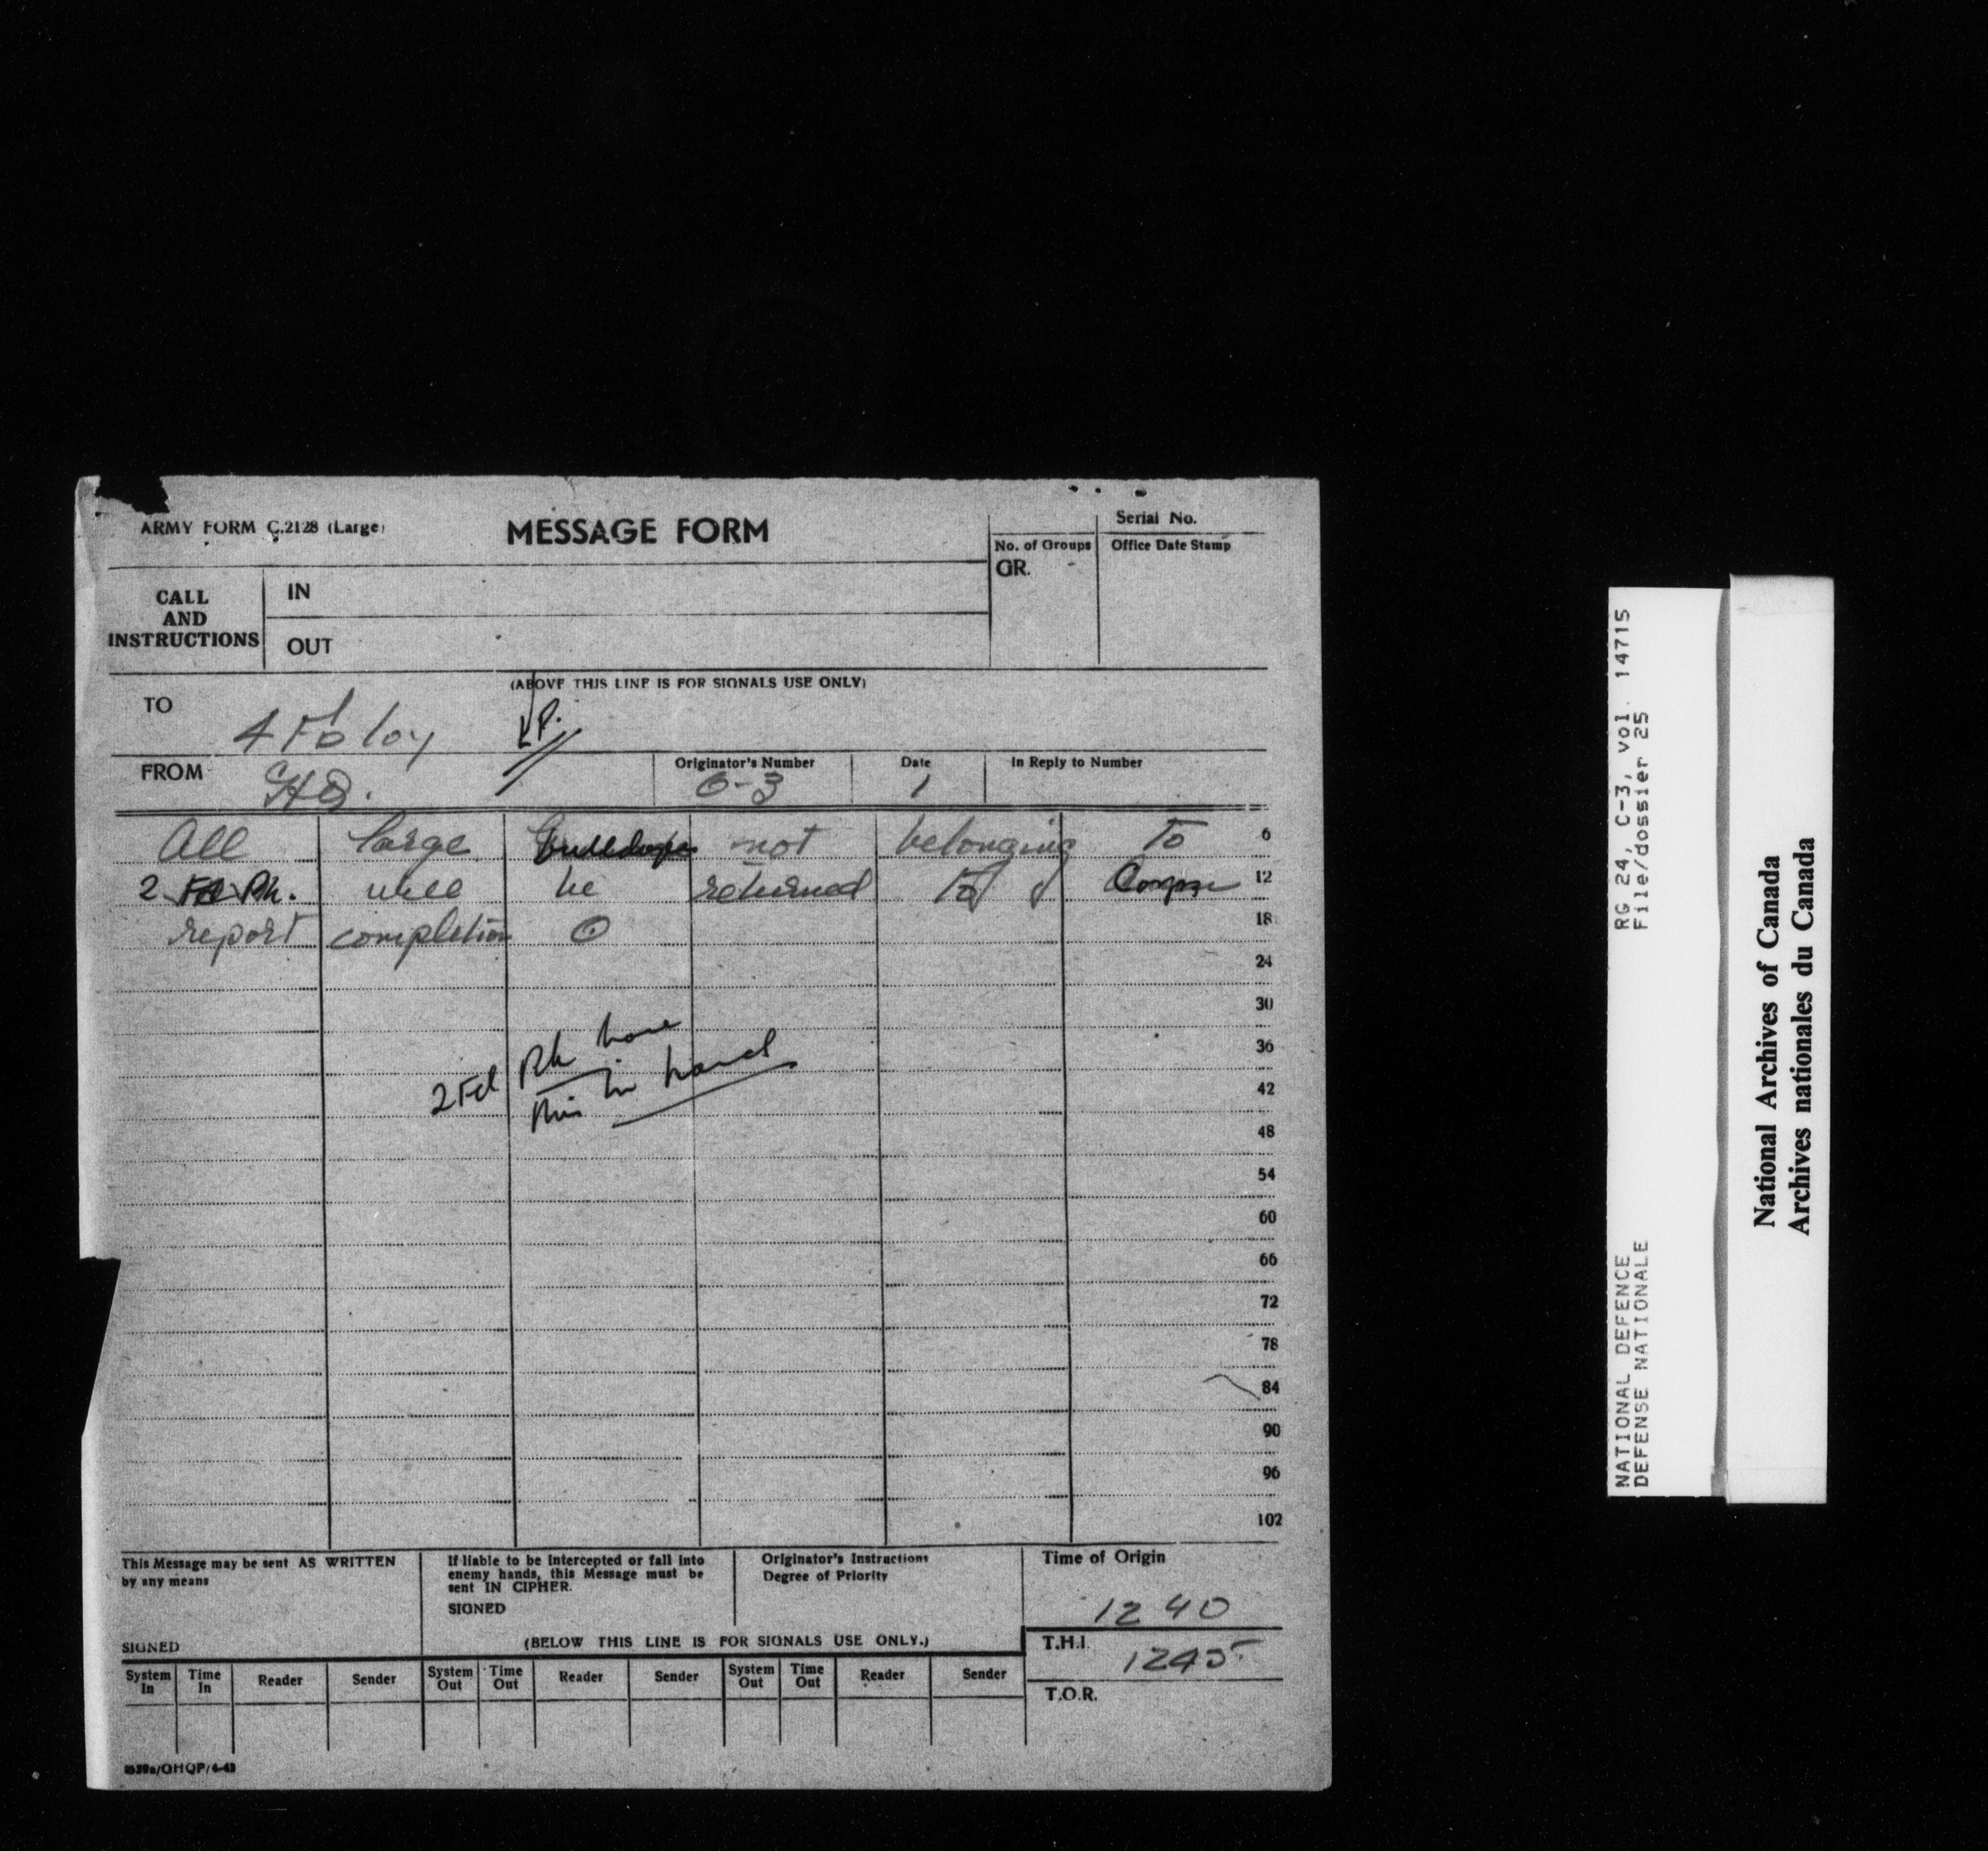 ARMY FORM C.2128 (Large)
MESSAGE FORM
Serial No.
No. of Groups
GR.
Office Date Stamp
CALL
AND
INSTRUCTIONS
IN
OUT
(ABOVE THIS LINE IS FOR SIGNALS USE ONLY)
TO
4 Fd Coy
FROM
HQ.
Originator's Number
O-3
Date
1
In Reply to Number
All large bulldozers not belonging to 6
2 Fd Pk. will be returned to Corps 12
report completion ⊙ 18
24
30
2 Fd Pk have 36
this in hand 42
48
54
60
66
72
78
84
90
96
102
This Message may be sent AS WRITTEN
by any means
SIGNED
If liable to be intercepted or fall into
enemy hands, this Message must be
sent IN CIPHER.
SIGNED
Originator's Instructions
Degree of Priority
Time of Origin
1240
(BELOW THIS LINE IS FOR SIGNALS USE ONLY.)
T.H.I.
1245
T.O.R.
System In Time In Reader Sender System Out Time Out Reader Sender System Out Time Out Reader Sender
RG 24, C-3, vol. 14715
File/dossier 25
NATIONAL DEFENCE
DEFENSE NATIONALE
National Archives of Canada
Archives nationales du Canada